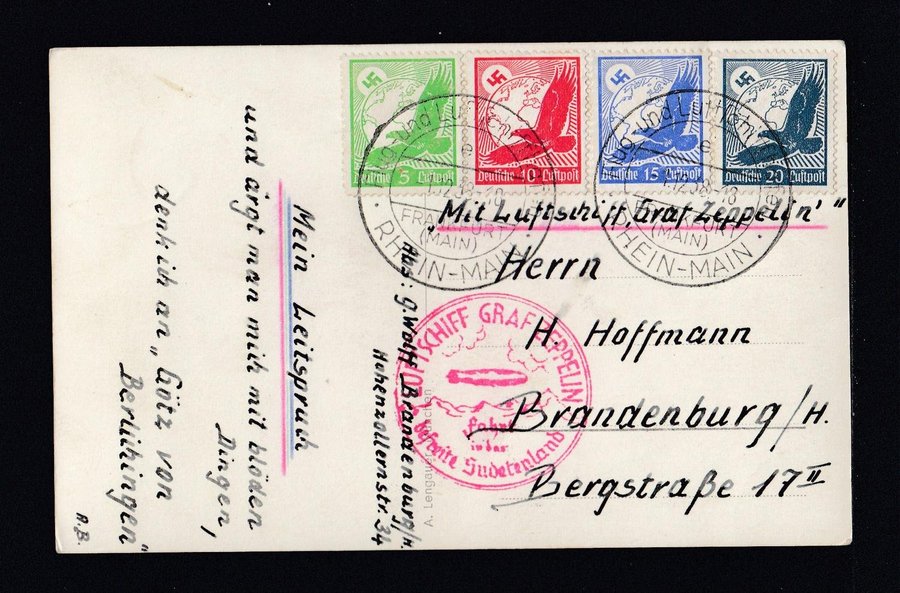 Deutsche 5 Luftpost
Deutsche 10 Luftpost
Deutsche 15 Luftpost
Deutsche 20 Luftpost
Flug- und Luftschiffhafen
e
FRANKFURT
(MAIN)
RHEIN-MAIN
Flug- und Luftschiffhafen
e
FRANKFURT
(MAIN)
RHEIN-MAIN
„Mit Luftschiff, Graf Zeppelin' "
Herrn
H. Hoffmann
Brandenburg/H.
Bergstraße 17 II
LUFTSCHIFF GRAF ZEPPELIN
Fahrt
in das
befreite Sudetenland
Abs: G. Wolff Brandenburg/H.
Hohenzollernstr. 34
A. Lengauer
Mein Leitspruch
und ärgt man mich mit blöden
Dingen,
denk ich an „Götz von
Berlichingen"
A.B.